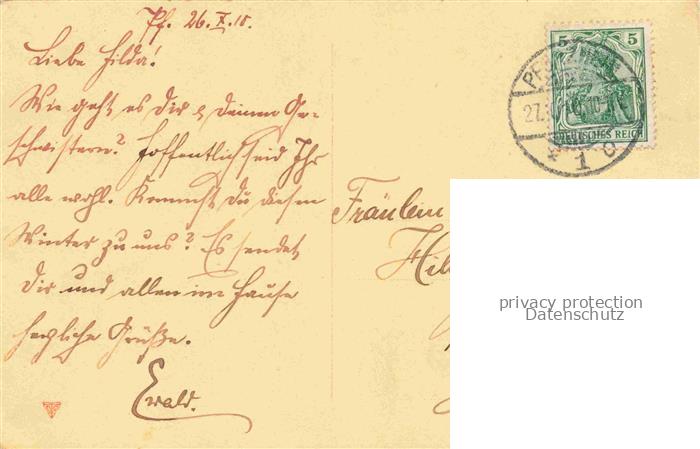 Pf. 26. X. 10.
Liebe Hilda!
Wie geht es Dir & Deinen Ge-
schwistern? Hoffentlich seid Ihr
alle wohl. Kommst Du diesen
Winter zu uns? Es sendet
Dir und allen im Hause
herzliche Grüße.
Ewald.
5 5
DEUTSCHES REICH
PF
27.
* 1 c
Fräulein
Hil
privacy protection
Datenschutz